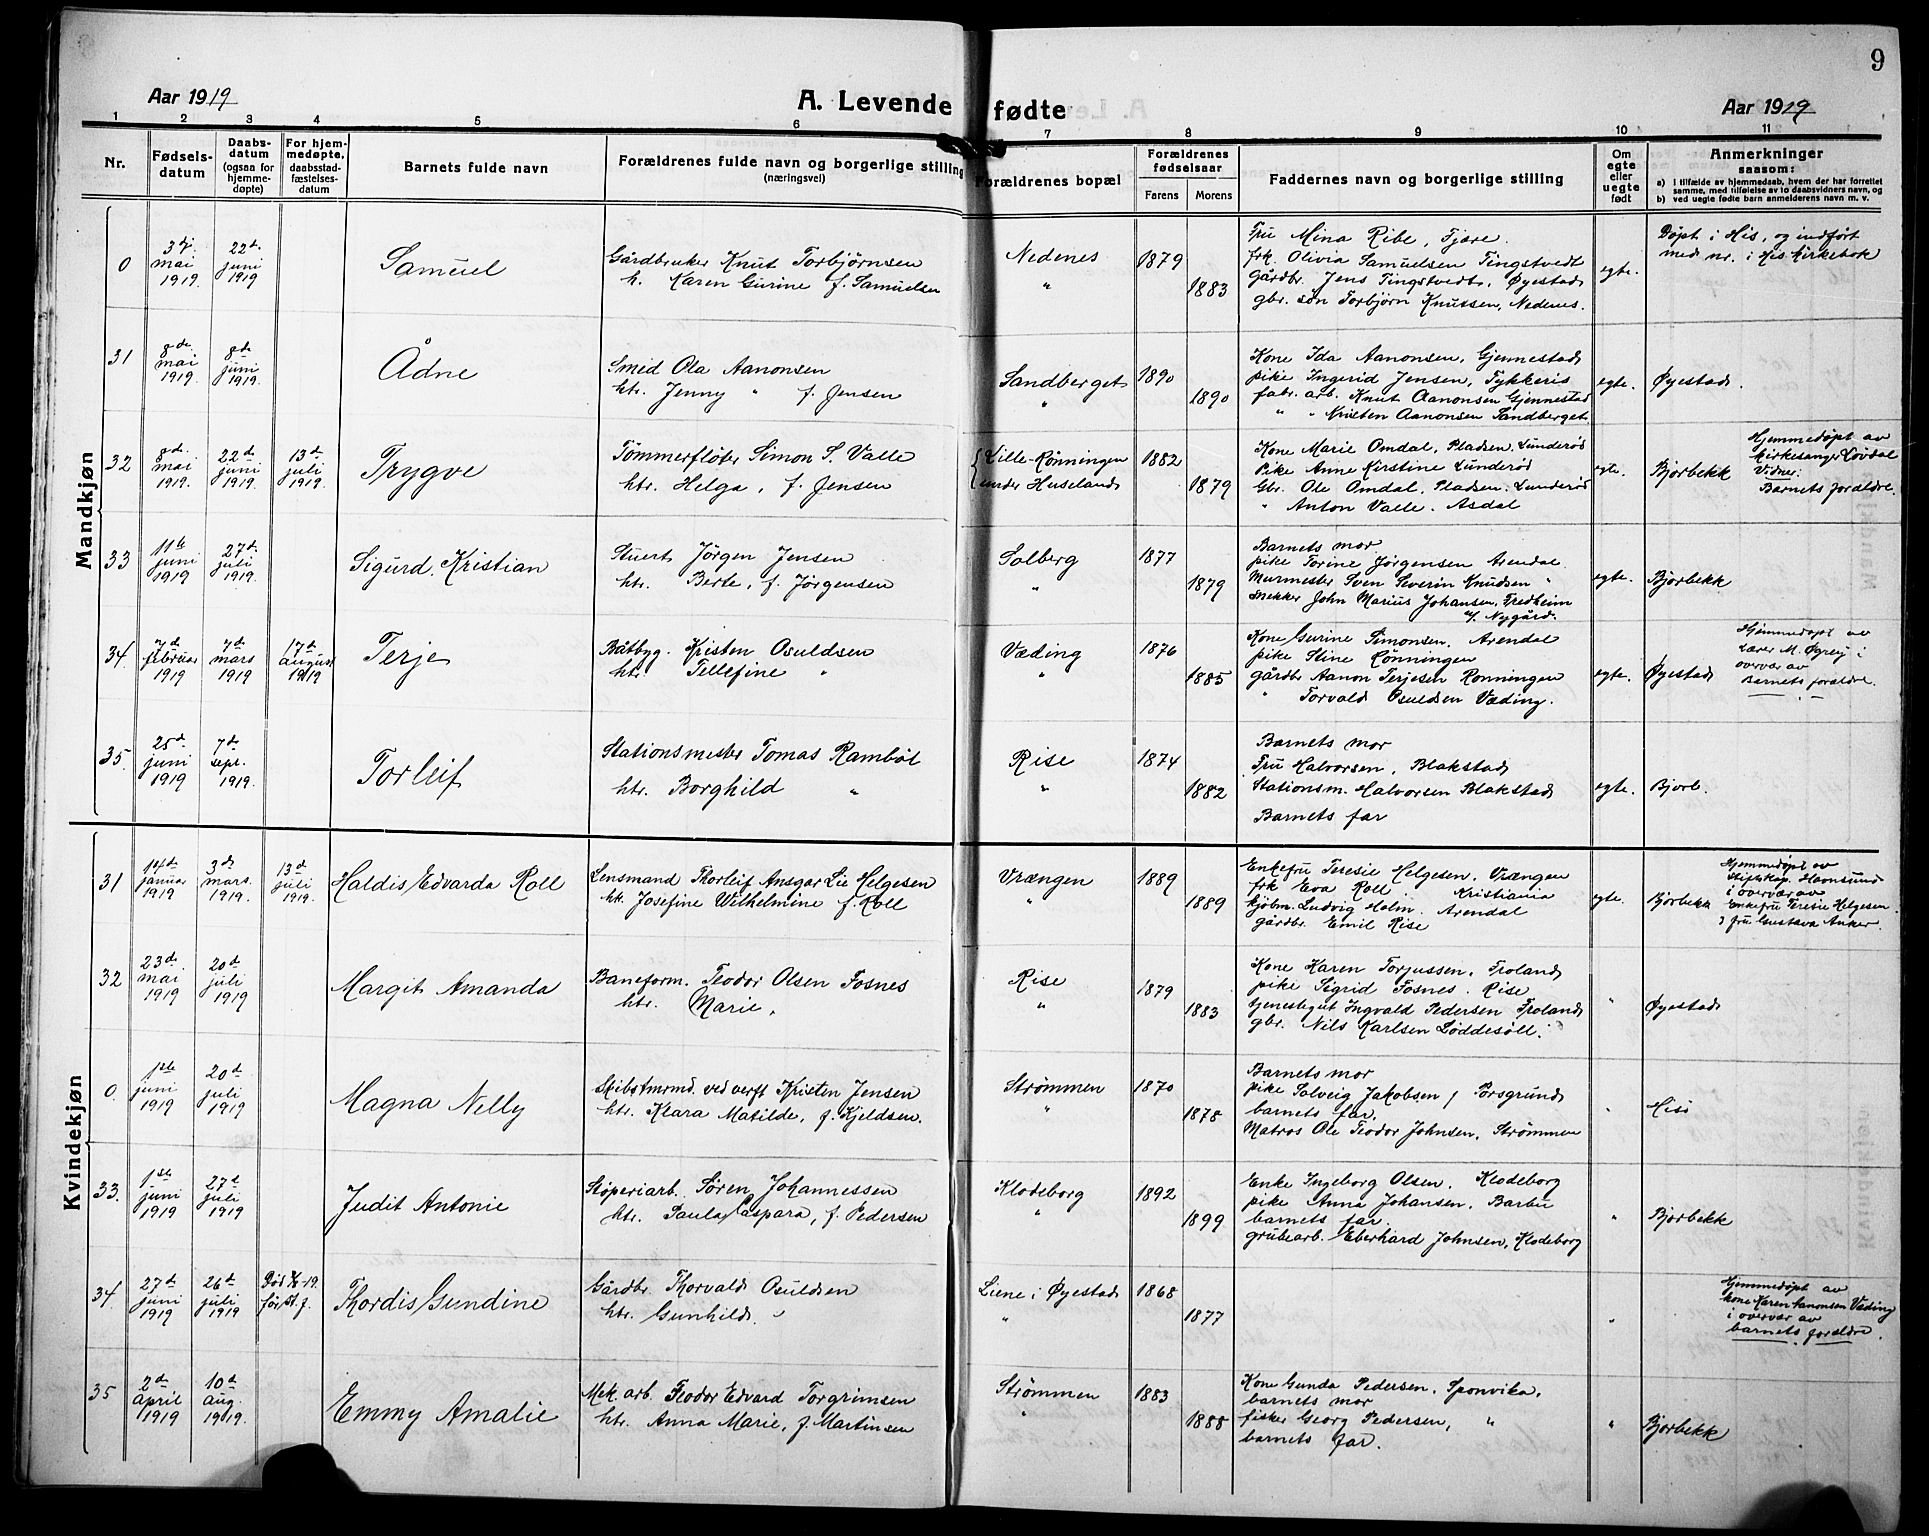 9
Aar 1919
A. Levende fødte
Aar 1919
1 2 3 4 5 6 7 8 9 10 11
Nr.
Fødsels-
datum
Daabs-
datum
(ogsaa for
hjemme-
døpte)
For hjem-
medøpte,
daabsstad-
fæstelses-
datum
Barnets fulde navn
Forældrenes fulde navn og borgerlige stilling
(næringsvei)
Forældrenes bopæl
Forældrenes
fødselsaar
Farens Morens
Faddernes navn og borgerlige stilling
Om
egte
eller
uegte
født
Anmerkninger
saasom:
a) i tilfælde av hjemmedaab, hvem der har forrettet
samme, med tilføielse av to daabsvidners navn, og
b) ved uegte fødte barn anmelderens navn m. v.
Mandkjøn
0
3dj
mai
1919.
22de
juni
1919.
Samuel
Gårdbruker Knut Torbjørnsen
h. Karen Gurine f. Samuelsen
Nedenes
"
1879
1883
Fru Mina Ribe, Fjære.
frk. Olivia Samuelsen Tingstvedt
gårdbr. Jens Tingstvedt, Øyestad
gbr. søn Torbjørn Knutsen, Nedenes.
egte.
Døpt i His, og indført
med nr. i His kirkebok
31
8de
mai
1919.
8de
juni
1919.
Ådne
Smed Ola Aanonsen
htr. Jenny " f. Jensen
Sandberget
"
1890
1890
Kone Ida Aanonsen, Gjennestad
pike Ingerid Jensen, Tykkeris
fabr. arb. Knut Aanonsen Gjennestad
" " Kristen Aanonsen Sandberget
egte.
Øyestad.
32
8de
mai
1919.
22de
juni
1919.
13de
juli
1919.
Trygve
Tømmerfløter Simon S. Valle
htr. Helga, f. Jensen
Lille-Rønningen
under Huseland
1882
1879
Kone Marie Omdal, Pladsen, Lunderød
Pike Anne Kirstine Lunderød
Gbr. Ole Omdal, Pladsen, Lunderød
" Anton Valle. Asdal
egte.
Bjorbekk
Hjemmedøpt av
kirkesanger Løvdal
Vidner:
Barnets forældre.
33
11te
juni
1919
27de
juli
1919.
Sigurd. Kristian
Stuert Jørgen Jensen
htr. Berte, f. Jørgensen
Solberg
"
1877
1879
Barnets mor
pike Torine Jørgensen Arendal
Murmester Sven Severin Knudsen "
snekker John Marius Johansen, Fredheim
v/ Nygård.
egte.
Bjorbekk
34.
7de
februar
1919
7de
mars
1919
17de
august
1919
Terje
Båtbyg. Kristen Osuldsen
htr. Tellefine "
Væding
"
1876
1885
Kone Gurine Simonsen. Arendal
pike Stine Rønningen
gårdbr Aanon Terjesen Rønningen
" Torvald Osuldsen Væding.
egte.
Øyestad
Hjemmedøpt av
Lærer M. Øgrey i
overvær av
Barnets forældre.
35.
25de
juni
1919
7de
sept.
1919.
Torleif
Stationsmester Tomas Rambøl
htr. Borghild "
Rise
"
1874
1882
Barnets mor
Fru Halvorsen, Blakstad
Stationsm. Halvorsen Blakstad
Barnets far
egte.
Bjorb.
Kvindekjøn
31
14de
januar
1919
3de
mars.
1919.
13de
juli
1919.
Haldis Edvarda Roll
Lensmand Thorleif Ansgar Lie Helgesen
htr. Josefine Wilhelmine f. Roll
Vrængen
"
1889
1889
Enkefru Teresie Helgesen, Vrængen
frk Eva Roll. Kristiania
kjøbm. Ludvig Holm. Arendal
gårdbr. Emil Rise
egte.
Bjorbekk
Hjemmedøpt av
Stiftskap. Havnsund
i overvær av
Enkefru Teresie Helgesen
& fru Gustava Anker.
32
23de
mai
1919
20de
juli
1919
Margit Amanda
Baneform. Teodor Olsen Fosnes
htr. Marie "
Rise
"
1879
1883
Kone Karen Torjussen, Froland
pike Sigrid Fosnes. Rise
tjenestegut Ingvald Pedersen Froland
gbr. Nils Karlsen Løddesøll.
"
Øyestad
0.
1ste
juni
1919
20de
juli
1919
Magna Nelly
Skibstmrmd. ved verft Kristen Jensen
htr. Klara Matilde, f. Kjeldsen.
Strømmen
"
1870
1878
Barnets mor
pike Solveig Jakobsen / Porsgrund
barnets far.
Matros Ole Teodor Johnsen, Strømmen
"
Hisø
33.
1ste
juni
1919
27de
juli
1919
Judit Antonie
Støperiarb. Søren Johannessen
htr. Paula Caspara, f. Pedersen
Klodeborg
"
1892
1899
Enke Ingeborg Olsen, Klodeborg
pike Anna Johansen, Barbu
barnets far.
grubearb. Eberhard Johnsen, Klodeborg
"
Bjorbekk
34.
27de
juni
1919
26de
juli
1919
før st. f.
Thordis Gundine
Gårdbr. Thorvald Osuldsen
htr. Gunhild "
Liene i Øyestad
"
1868
1877
"
Hjemmedøpt av
kone Karen Aanonsen Væding
i overvær av
barnets forældre.
35
2de
April
1919
10de
Aug.
1919.
Emmy Amalie
Mek. arb. Teodor Edvard Torgrimsen
htr. Anna Marie, f. Martinsen
Strømmen
"
1883
1888
Kone Gunda Pedersen, Sponvika,
barnets mor
fisker Georg Pedersen, "
barnets far.
"
Bjorbekk